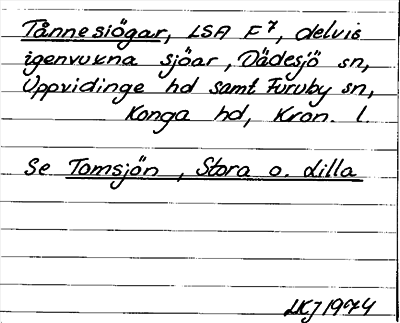 Tånnesiögar, LSA F7, delvis
igenvuxna sjöar, Dädesjö sn,
Uppvidinge hd samt Furuby sn,
Konga hd, Kron. l.
Se Tomsjön, Stora o. Lilla
LKJ 1974